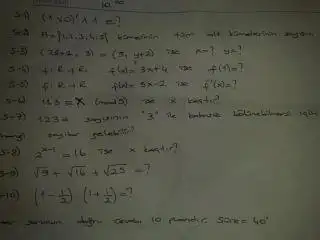 S-1) (1∨0)' ∧ 1 ≡ ?
S-2) A = {1,2,3,4,5} kümesinin tüm alt kümelerinin sayısı
S-3) (2x+2, 3) = (5, y+2) ise x=? y=?
S-4) f: R→R, f(x) = 3x+4 ise f(1)=?
S-5) f: R→R f(x) = 5x-2 ise f⁻¹(x)=?
S-6) 113 ≡ x (mod 5) ise x kaçtır?
S-7) 123 sayısının "3" ile bölünebilmesi için
hangi sayılar gelebilir?
S-8) 2^(x-1) = 16 ise x kaçtır?
S-9) √9 + √16 + √25 = ?
S-10) (1 - 1/2) (1 + 1/2) = ?
sorunun doğru cevabı 10 puandır. Süre = 40'